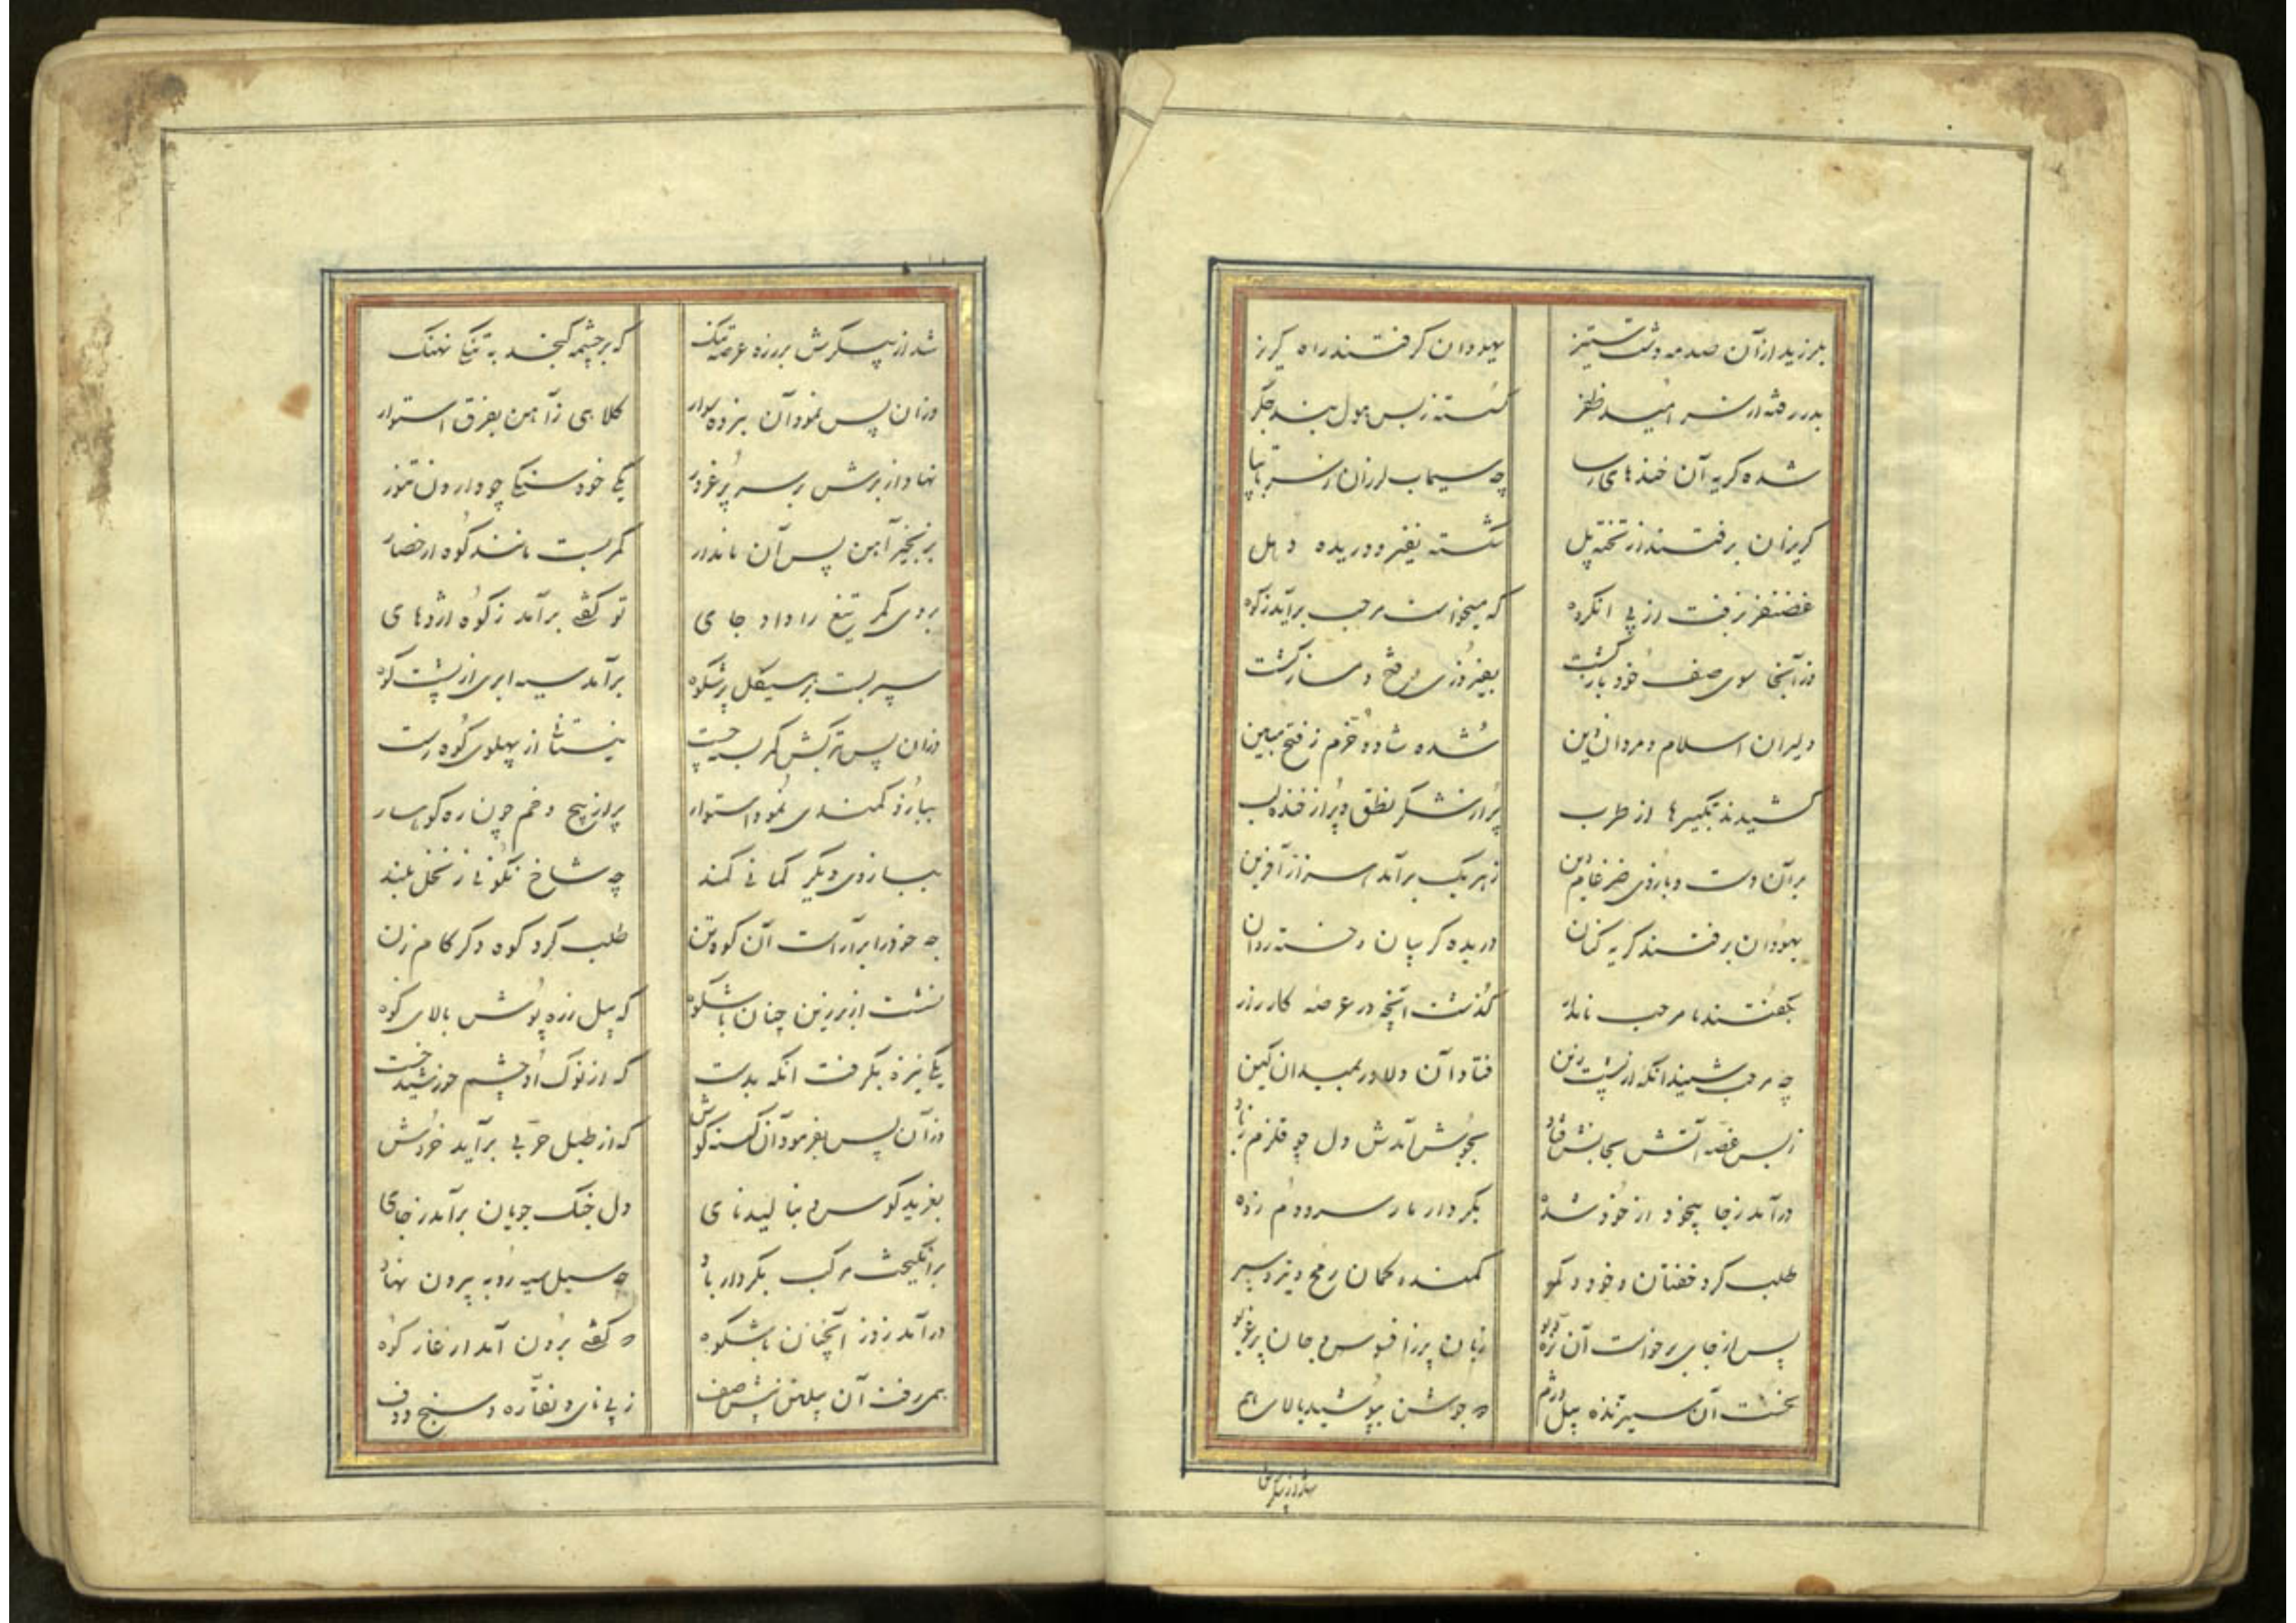 بلرزید از آن صدمه دشت ستیز یهودان گرفتند راه گریز
بدر رفته از سر امید ظفر گسسته ز بس هول بند جگر
شده گریه آن خندهای چه سیماب لرزان ز سر تا بپا
گریزان برفتند از تخته پل شکسته نفیر و دریده دهل
غضنفر نرفت از پی انکروه که میخواست مرحب برآید ز کوه
وز آنجا سوی صف خود بازگشت بفیروزی و فتح دمساز گشت
دلیران اسلام و مردان دین شده شاد و خرم ز فتح مبین
کشیدند تکبیرها از طرب پر از شکر نطق و پر از خنده لب
بر آن دست و بازوی ضرغام دین ز هر یک برآمد سزاز آفرین
یهودان برفتند گریه کنان دریده گریبان و خسته روان
بگفتند با مرحب نامدار گذشت آنچه در عرصه کارزار
چه مرحب شنید آنکه از پشت زین فتاد آن دلاور بمیدان کین
ز بس غصه آتش بجانش فتاد بجوش آمدش دل چو قلزم ز باد
درآمد ز جا بیخود از خود شده بکردار مار سر و دم زده
طلب کرد خفتان و خود و کمر کمند و کمان رمح و تیر و سپر
پس از جای برخواست آن نره دیو زبان پر ز افسوس و جان پر غریو
نخست آن ستیزنده پیل دژم چه جوشن بپوشید بالای هم
شد از پیکرش
شد از پیکرش بر زره عرصه تنک که بر چشمه گنجد به تنکی نهنک
وزان پس نمود آن نبرده سوار کلاهی ز آهن بفرق استوار
نهاد از برش بر سر پر غرور یکی خود سنکی چو وارون تنور
بزنجیر آهن پس آن نامدار کمر بست مانند کوه از حصار
بروی کمر تیغ را داد جای تو گفتی برآمد ز کوه اژدهای
سپر بست بر هیکل پرشکوه برآمد سیه ابری از پشت کوه
وزان پس ترکش کمر بست چست نیستان از پهلوی کوه رست
ببازو کمندی نمود استوار پر از پیچ و خم چون ره کوهسار
ببازوی دیگر کمانی فکند چه شاخ نگونی ز نخل بلند
چه خود را برآراست آن کوه تن طلب کرد کوه دگر کام زن
نشست از بر زین چنان باشکوه که پیل زره پوش بالای کوه
یکی نیزه بگرفت آنکه بدست که از نوک او چشم خورشید خست
وز آن پس بفرمود آن کینه کوش که از طبل حربی برآید خروش
بغرید کوس و بنالید نای دل جنک جویان برآمد ز جای
برانکیخت مرکب بکردار باد چه سیل سیه رو به بیرون نهاد
درآمد ز دز آنچنان باشکوه چه گفتی برون آمد از غار کوه
همی رفت آن پیلتن پیش صف ز پی نای و نقاره و سنج و دف